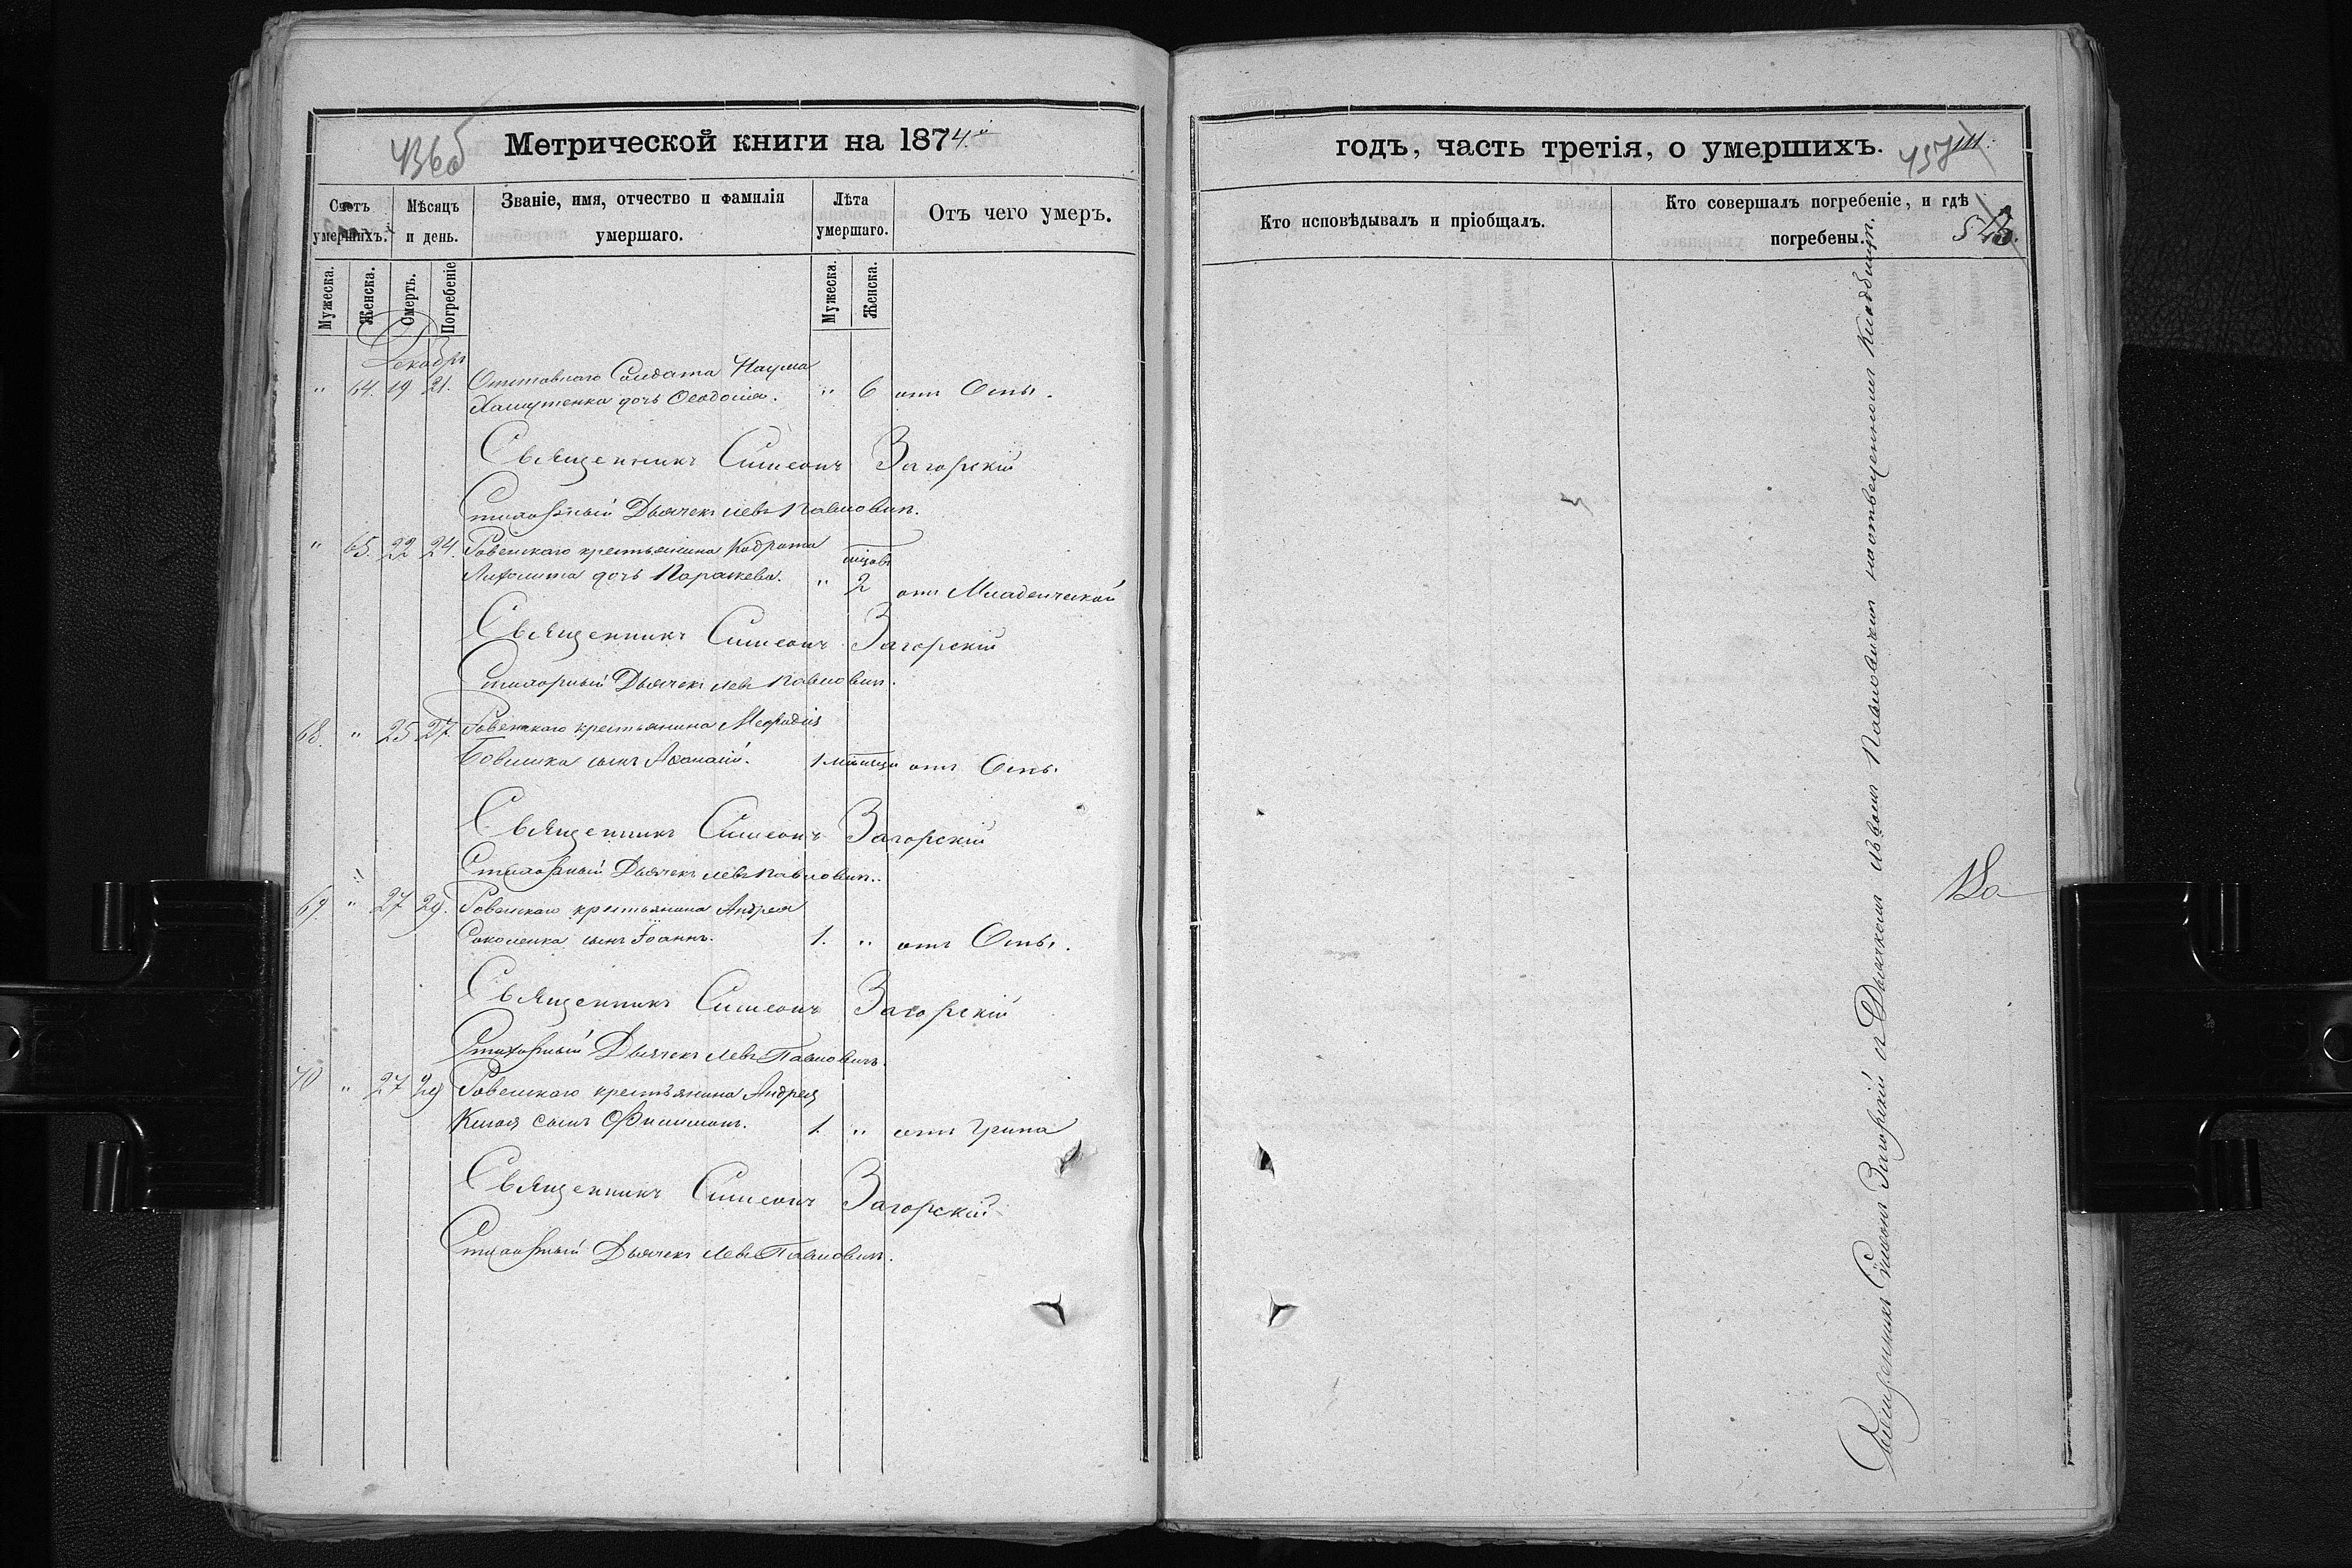 436об
Метрической книги на 1874й
Счетъ умершихъ.
Мѣсяцъ и день.
Званіе, имя, отчество и фамилія умершаго.
Лѣта умершаго.
Отъ чего умеръ.
Мужеска.
Женска.
Смерть.
Погребеніе
Мужеска.
Женска.
Декабрь
" 64. 19 21. Отставнаго Солдата Наума
дочь Ѳеодосія. " 6 отъ Оспы.
Священникъ Симеонъ Загорскій
Стихарный Дьячекъ Левъ Павловичъ.
" 65. 22 24. Ровенскаго крестьянина Кодрата
дочь Параскева. мѣсцовъ " 2 отъ Младенческой
Священникъ Симеонъ Загорскій
Стихарный Дьячекъ Левъ Павловичъ.
68. " 25 27 Ровенскаго крестьянина Меѳодія
сынъ Аѳанасій. 1 мѣсяца отъ Оспы
Священникъ Симеонъ Загорскій
Стихарный Дьячекъ Левъ Павловичъ.
69. " 27 29. Ровенскаго крестьянина Андрея
Соколенка сынъ Іоаннъ. 1. " отъ Оспы.
Священникъ Симеонъ Загорскій
Стихарный Дьячекъ Левъ Павловичъ.
70 " 27 29 Ровенскаго крестьянина Андрея
сынъ Филимонъ. 1. " отъ Грипа
Священникъ Симеонъ Загорскій
Стихарный Дьячекъ Левъ Павловичъ.
годъ, часть третія, о умершихъ.
Кто исповѣдывалъ и пріобщалъ.
Кто совершалъ погребеніе, и гдѣ погребены.
Священникъ Симеонъ Загорскій съ Дьячкомъ Львомъ Павловичемъ на отведенномъ Кладбищѣ.